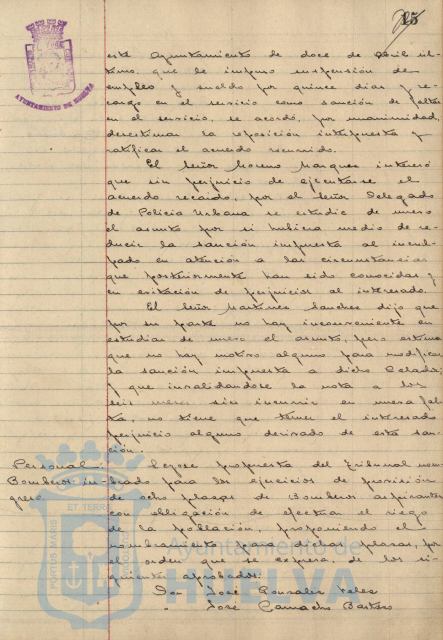 15
este Ayuntamiento de doce de Abril úl-
timo, que le impuso suspensión de
empleo y sueldo por quince días y re-
cargo en el servicio como sanción de faltas
en el servicio, se acordó, por unanimidad,
desestimar la reposición interpuesta y
ratificar el acuerdo recurrido.
El Señor Moreno Marquez interesó
que sin perjuicio de ejecutarse el
acuerdo recaido, por el Señor Delegado
de Policia Urbana se estudie de nuevo
el asunto por si hubiera medio de re-
ducir la sanción impuesta al incul-
pado en atención a las circunstancias
que posteriormente han sido conocidas y
en evitación de perjuicios al interesado.
El Señor Martinez Sanchez dijo que
por su parte no hay inconveniente en
estudiar de nuevo el asunto, pero estima
que no hay motivo alguno para modificar
la sanción impuesta a dicho Celador;
y que invalidandose la nota a los
seis meses sin incurrir en nueva fal-
ta, no tiene que temer el interesado
perjuicio alguno derivado de esta san-
ción.
Personal.
Bomberos in-
greso
Leyose propuesta del Tribunal nom-
brado para los ejercicios de provisión
de ocho plazas de Bomberos aspirantes
con obligación de efectuar el riego
de la población, proponiendo el
nombramiento para dichas plazas, por
el orden que se expresa, de los si-
guientes aprobados:
Don José Gonzalez Velez
" José Camacho Bastero
AYUNTAMIENTO DE HUELVA
PORTUS MARIS ET TERRAE
Ayuntamiento de
HUELVA